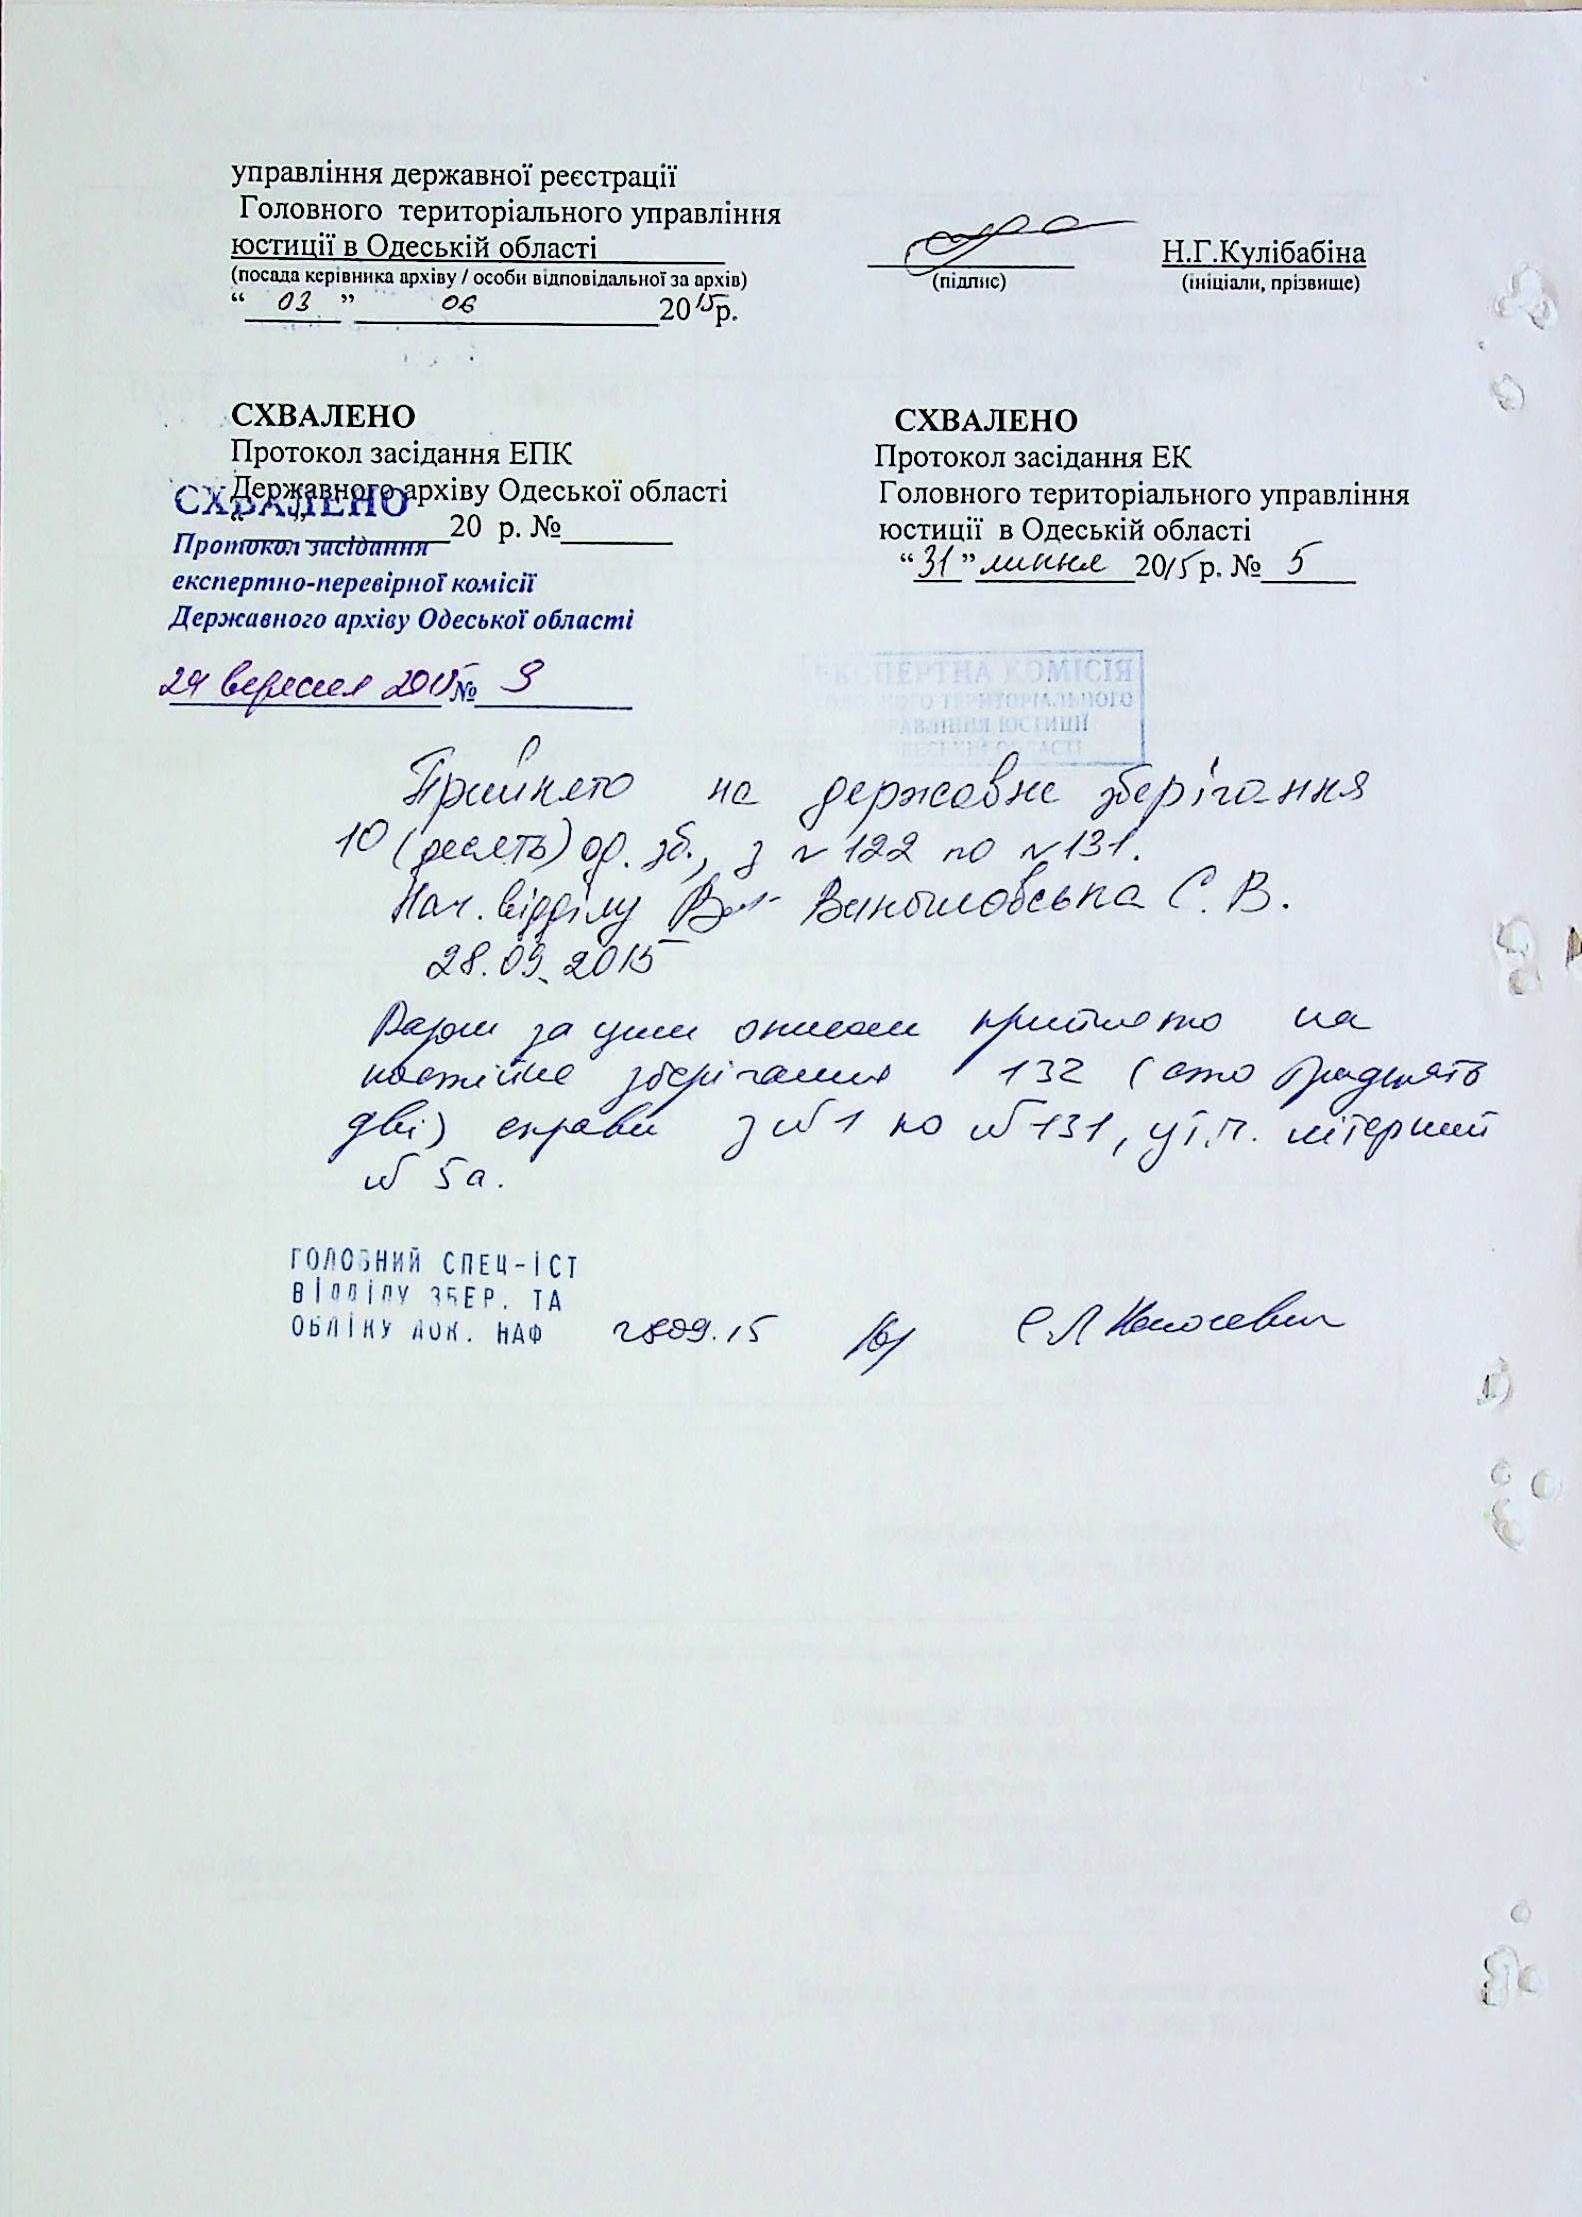 управління державної реєстрації
Головного територіального управління
юстиції в Одеській області
(посада керівника архіву / особи відповідальної за архів)
“ 03 ” 06 2015р.
(підпис)
Н.Г.Кулібабіна
(ініціали, прізвище)
СХВАЛЕНО
Протокол засідання ЕПК
Державного архіву Одеської області
“ ” 20 р. №
СХВАЛЕНО
Протокол засідання
експертно-перевірної комісії
Державного архіву Одеської області
29 вересня 2015 № 9
СХВАЛЕНО
Протокол засідання ЕК
Головного територіального управління
юстиції в Одеській області
“31” липня 2015 р. № 5
ЕКСПЕРТНА КОМІСІЯ
ГОЛОВНОГО ТЕРИТОРІАЛЬНОГО
УПРАВЛІННЯ ЮСТИЦІЇ
В ОДЕСЬКІЙ ОБЛАСТІ
Прийнято на державне зберігання
10 (десять) од. зб., з №122 по №131.
Нач. відділу С. В.
28.09.2015
Разом за цим описом прийнято на
постійне зберігання 132 (сто тридцять
дві) справи з №1 по №131, у т.ч. літерний
№ 5а.
ГОЛОВНИЙ СПЕЦ-ІСТ
ВІДДІЛУ ЗБЕР. ТА
ОБЛІКУ ДОК. НАФ 28.09.15